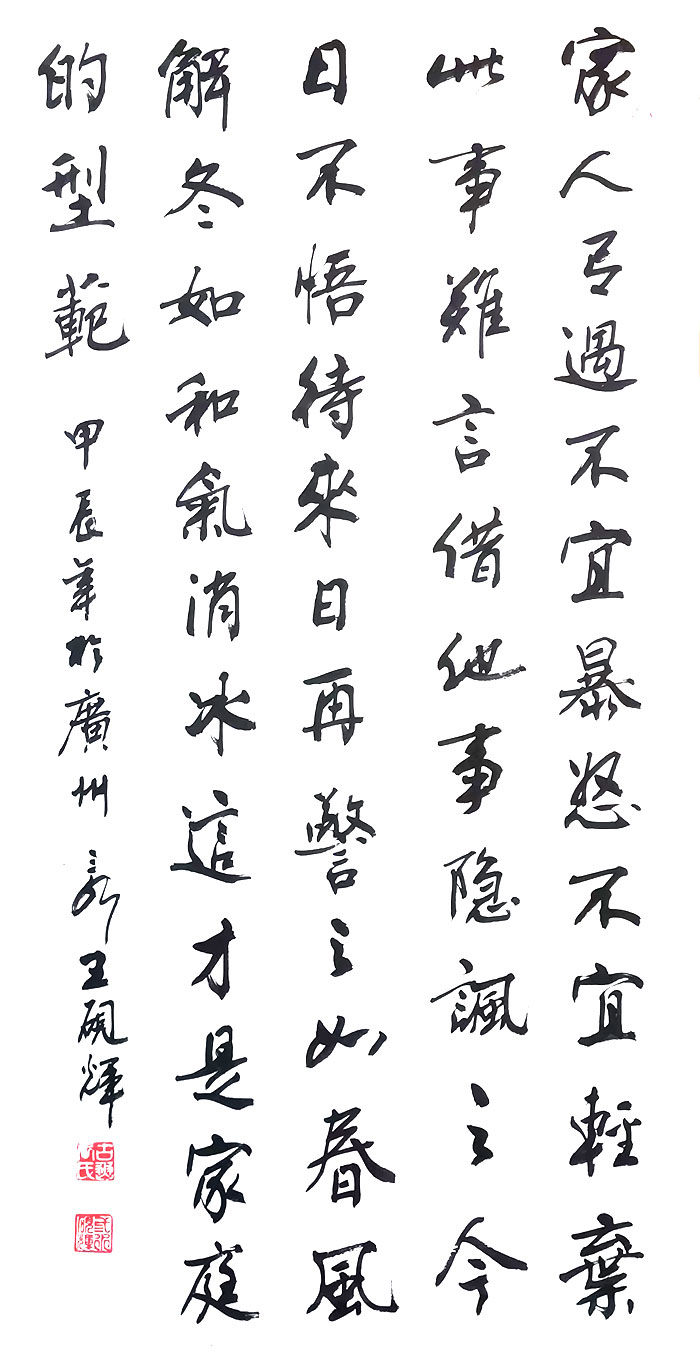 家人有過不宜暴怒不宜輕棄
此事難言借他事隐諷之今
日不悟待來日再警之如春風
解冬如和氣消冰這才是家庭
的型範 甲辰年於廣州 王硯輝